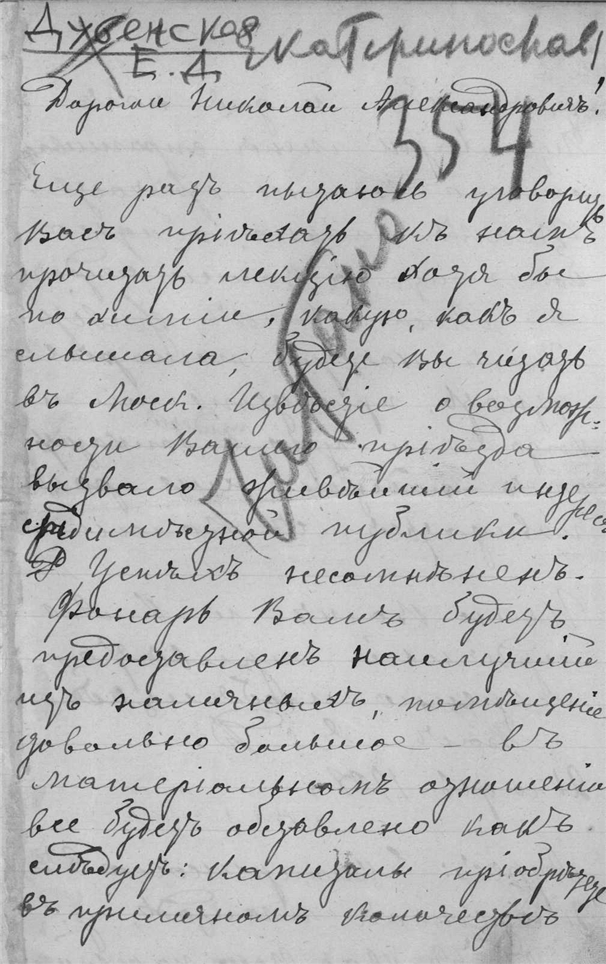 Дубенская
Е. Д.
Екатеринослав
354
Дорогой Николай Александровичъ!
Еще разъ пытаюсь уговорить
Васъ пріѣхать къ намъ
прочитать лекцію хотя бы
по химіи, какую, какъ я
слышала, будете Вы читать
въ Моск. Извѣстіе о возмож-
ности Вашего пріѣзда
вызвало живѣйшій интересъ
мѣстной публики.
Успѣхъ несомнѣненъ.
Фонарь Вамъ будетъ
предоставленъ наилучшій
изъ наличныхъ, помѣщеніе
довольно большое – въ
матеріальномъ отношеніи
все будетъ обставлено какъ
слѣдуетъ: капиталы пріобрѣтете
въ приличномъ количествѣ